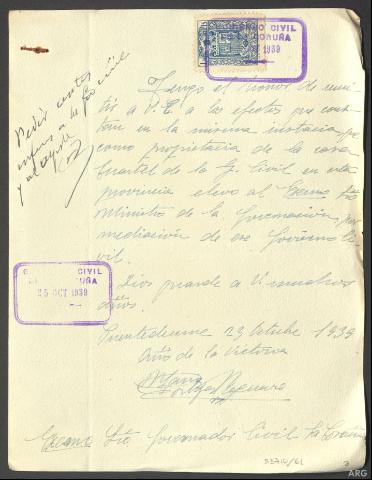 GOBIERNO CIVIL
LA CORUÑA
1939
Pedir antes
informe a la G. Civil
y al
Tengo el honor de remi-
tir a V.E a los efectos que cons-
tan en la misma instancia que
como propietaria de la casa
Cuartel de la G. Civil en esta
provincia elevo al Excmo Sr
Ministro de la Gobernación por
mediación de ese Gobierno Ci-
vil.
CIVIL
25 OCT 1939
Dios guarde a V. muchos
años.
Puentedeume 23 Octubre 1939
Año de la Victoria
María
Excmo Sr Gobernador Civil La Coruña
ARG